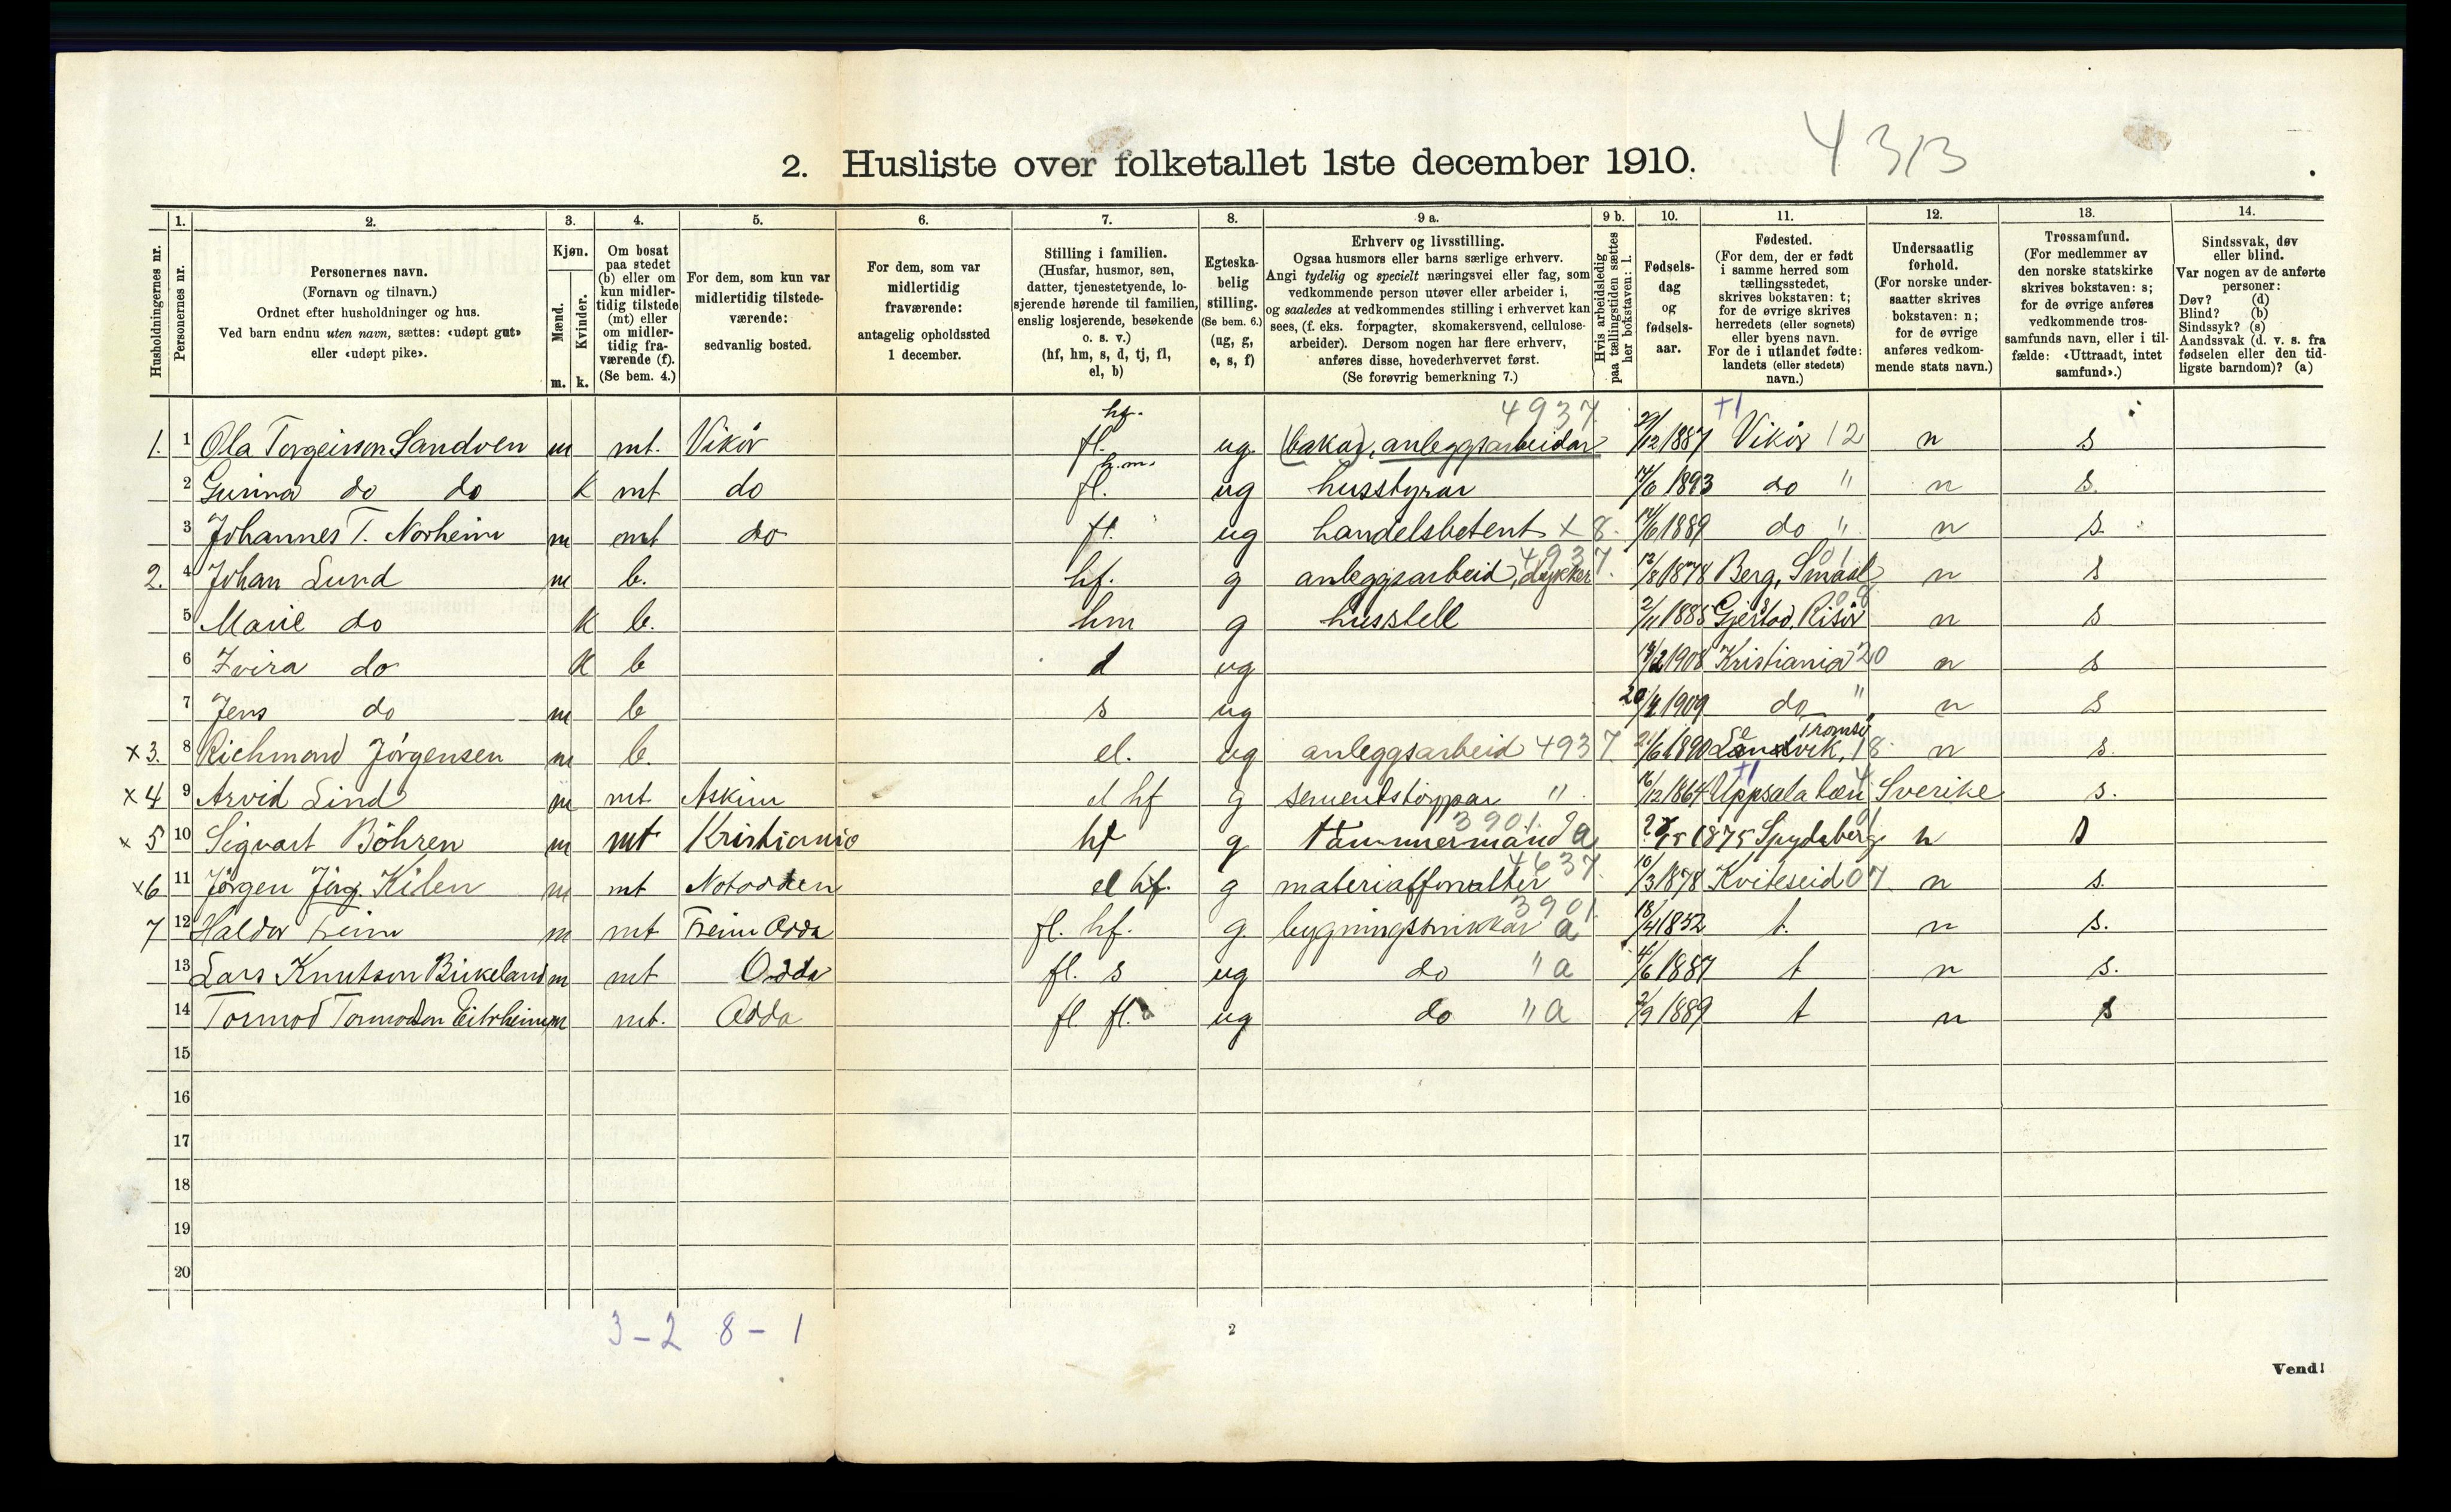 2. Husliste over folketallet 1ste december 1910. 4313
Husholdningernes nr.
1. Personernes nr.
2. Personernes navn. (Fornavn og tilnavn.) Ordnet efter husholdninger og hus. Ved barn endnu uten navn, sættes: «udøpt gut» eller «udøpt pike».
3. Kjøn. Mænd. m. Kvinder. k.
4. Om bosat paa stedet (b) eller om kun midlertidig tilstede (mt) eller om midlertidig fraværende (f). (Se bem. 4.)
5. For dem, som kun var midlertidig tilstedeværende: sedvanlig bosted.
6. For dem, som var midlertidig fraværende: antagelig opholdssted 1 december.
7. Stilling i familien. (Husfar, husmor, søn, datter, tjenestetyende, losjerende hørende til familien, enslig losjerende, besøkende o. s. v.) (hf, hm, s, d, tj, fl, el, b)
8. Egteskabelig stilling. (Se bem. 6.) (ug, g, e, s, f)
9 a. Erhverv og livsstilling. Ogsaa husmors eller barns særlige erhverv. Angi tydelig og specielt næringsvei eller fag, som vedkommende person utøver eller arbeider i, og saaledes at vedkommendes stilling i erhvervet kan sees, (f. eks. forpagter, skomakersvend, cellulosearbeider). Dersom nogen har flere erhverv, anføres disse, hovederhvervet først. (Se forøvrig bemerkning 7.)
9 b. Hvis arbeidsledig paa tællingstiden sættes her bokstaven: l.
10. Fødselsdag og fødselsaar.
11. Fødested. (For dem, der er født i samme herred som tællingsstedet, skrives bokstaven: t; for de øvrige skrives herredets (eller sognets) eller byens navn. For de i utlandet fødte: landets (eller stedets) navn.)
12. Undersaatlig forhold. (For norske undersaatter skrives bokstaven: n; for de øvrige anføres vedkommende stats navn.)
13. Trossamfund. (For medlemmer av den norske statskirke skrives bokstaven: s; for de øvrige anføres vedkommende trossamfunds navn, eller i tilfælde: «Uttraadt, intet samfund».)
14. Sindssvak, døv eller blind. Var nogen av de anførte personer: Døv? (d) Blind? (b) Sindssyk? (s) Aandssvak (d. v. s. fra fødselen eller den tidligste barndom)? (a)
1. 1 Ola Torgeirson Sandven m mt. Vikör fl. hf. ug (bakar), anleggsarbeidar 4937 29/12 1887 Vikör 12 n s
2 Gurina do do k mt do fl. h.m. ug husstyrar 14/6 1893 do " n s.
3 Johannes T. Norheim m mt do fl. ug handelsbetent x 8. 14/6 1889 do " n s.
2. 4 Johan Lund m b. hf. g anleggsarbeid, dykker 4937. 13/8 1878 Berg, Smaal 01 n s
5 Marie do k b. hm g husstell 2/11 1885 Gjerstad, Risör n s
6 do k b d ug 1908 Kristiania 20 n s
7 Jens do m b s ug 1909 do " n s
x3. 8 Richmond Jörgensen m b. el. ug anleggsarbeid 4937. 21/6 1890 Tromsö 18 n s.
x4 9 Arvid Lind m mt Askim el hf g sementstöypar " 16/12 1864 Uppsala læn Sverike s.
x5 10 Sigvart Böhren m mt Kristiania hf g tömmermand a 3901 1875 Spydeberg n s
x6 11 Jörgen Jörg. Kilen m mt Notodden el hf. g materialforvalter 4637. 10/3 1878 Kviteseid 07 n s.
7 12 Haldor Freim m mt Freim Odda fl. hf. g bygningssnikkar a 3901. 18/4 1852 t. n s.
13 Lars Knutson Birkeland m mt Odda fl. s ug do " a 4/6 1887 t n s.
14 Tormod Tormodson Eitrheim m mt. Odda fl. fl. ug do " a 2/9 1889 t n s
15
16
17
18
19
20
3 – 2 8 – 1
2
Vend!